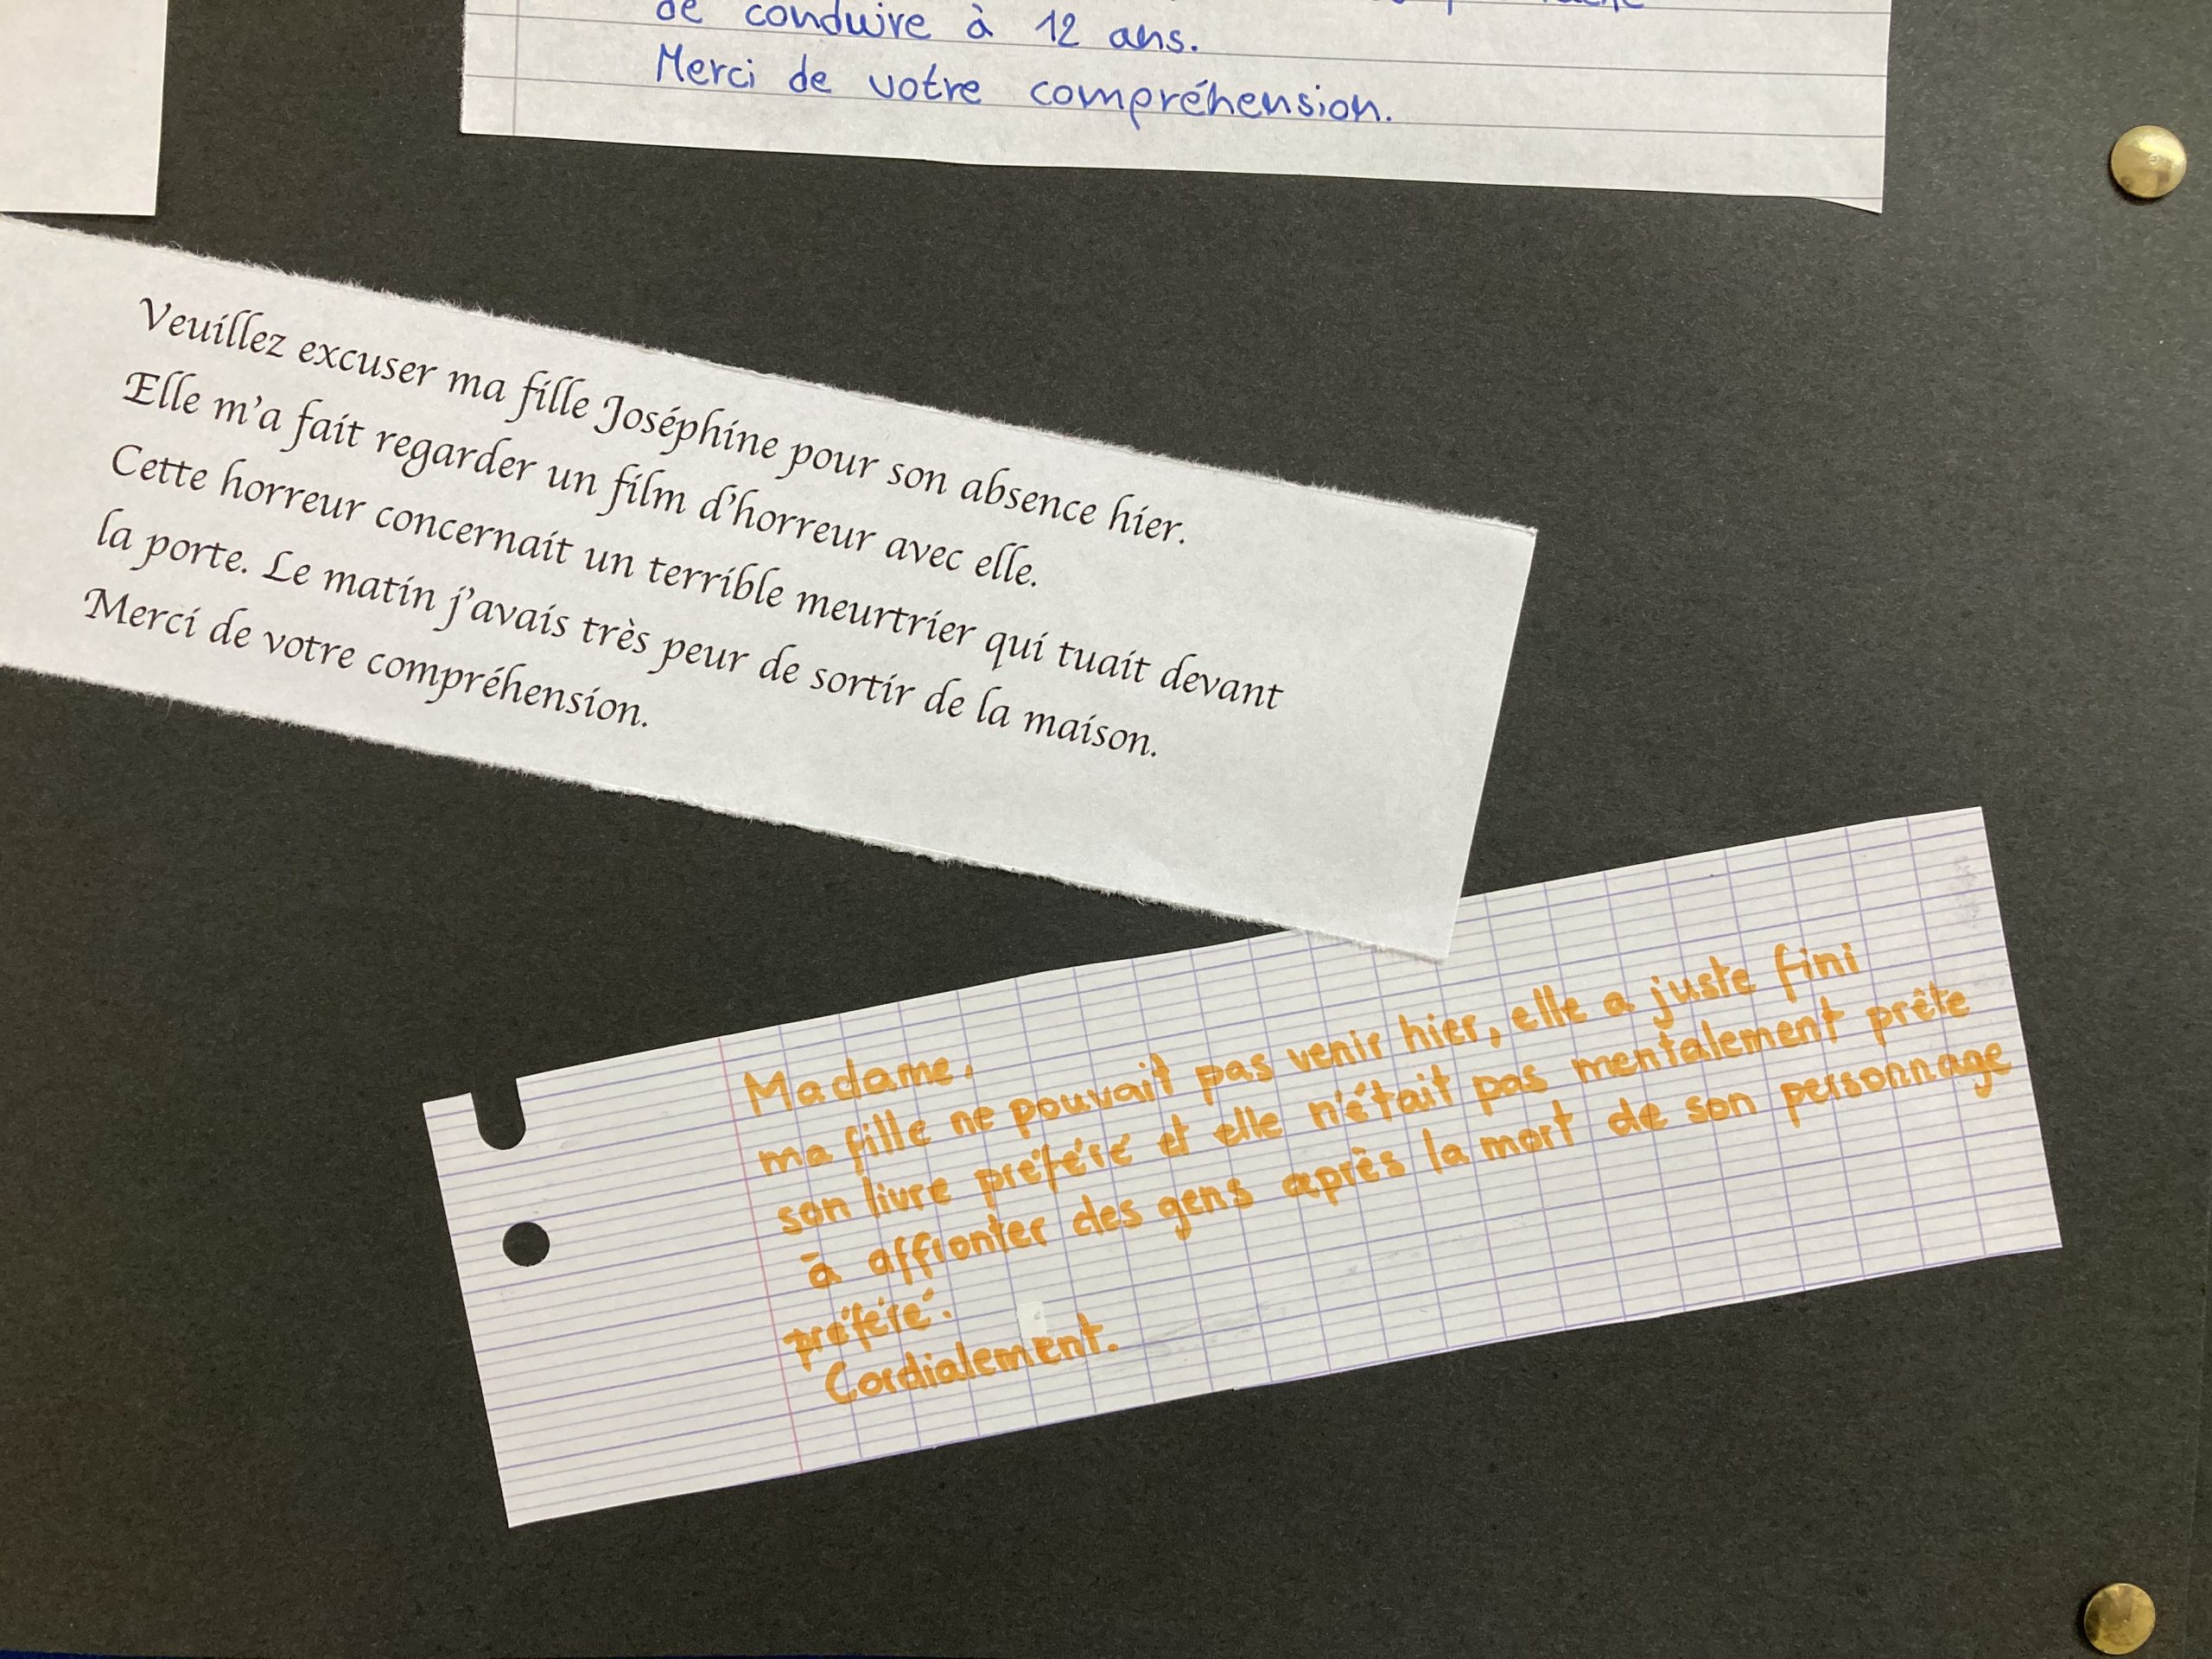 de conduire à 12 ans.
Merci de votre compréhension.
Veuillez excuser ma fille Joséphine pour son absence hier.
Elle m'a fait regarder un film d'horreur avec elle.
Cette horreur concernait un terrible meurtrier qui tuait devant
la porte. Le matin j'avais très peur de sortir de la maison.
Merci de votre compréhension.
Madame,
ma fille ne pouvait pas venir hier, elle a juste fini
son livre préféré et elle n'était pas mentalement prête
à affronter des gens après la mort de son personnage
préféré.
Cordialement.